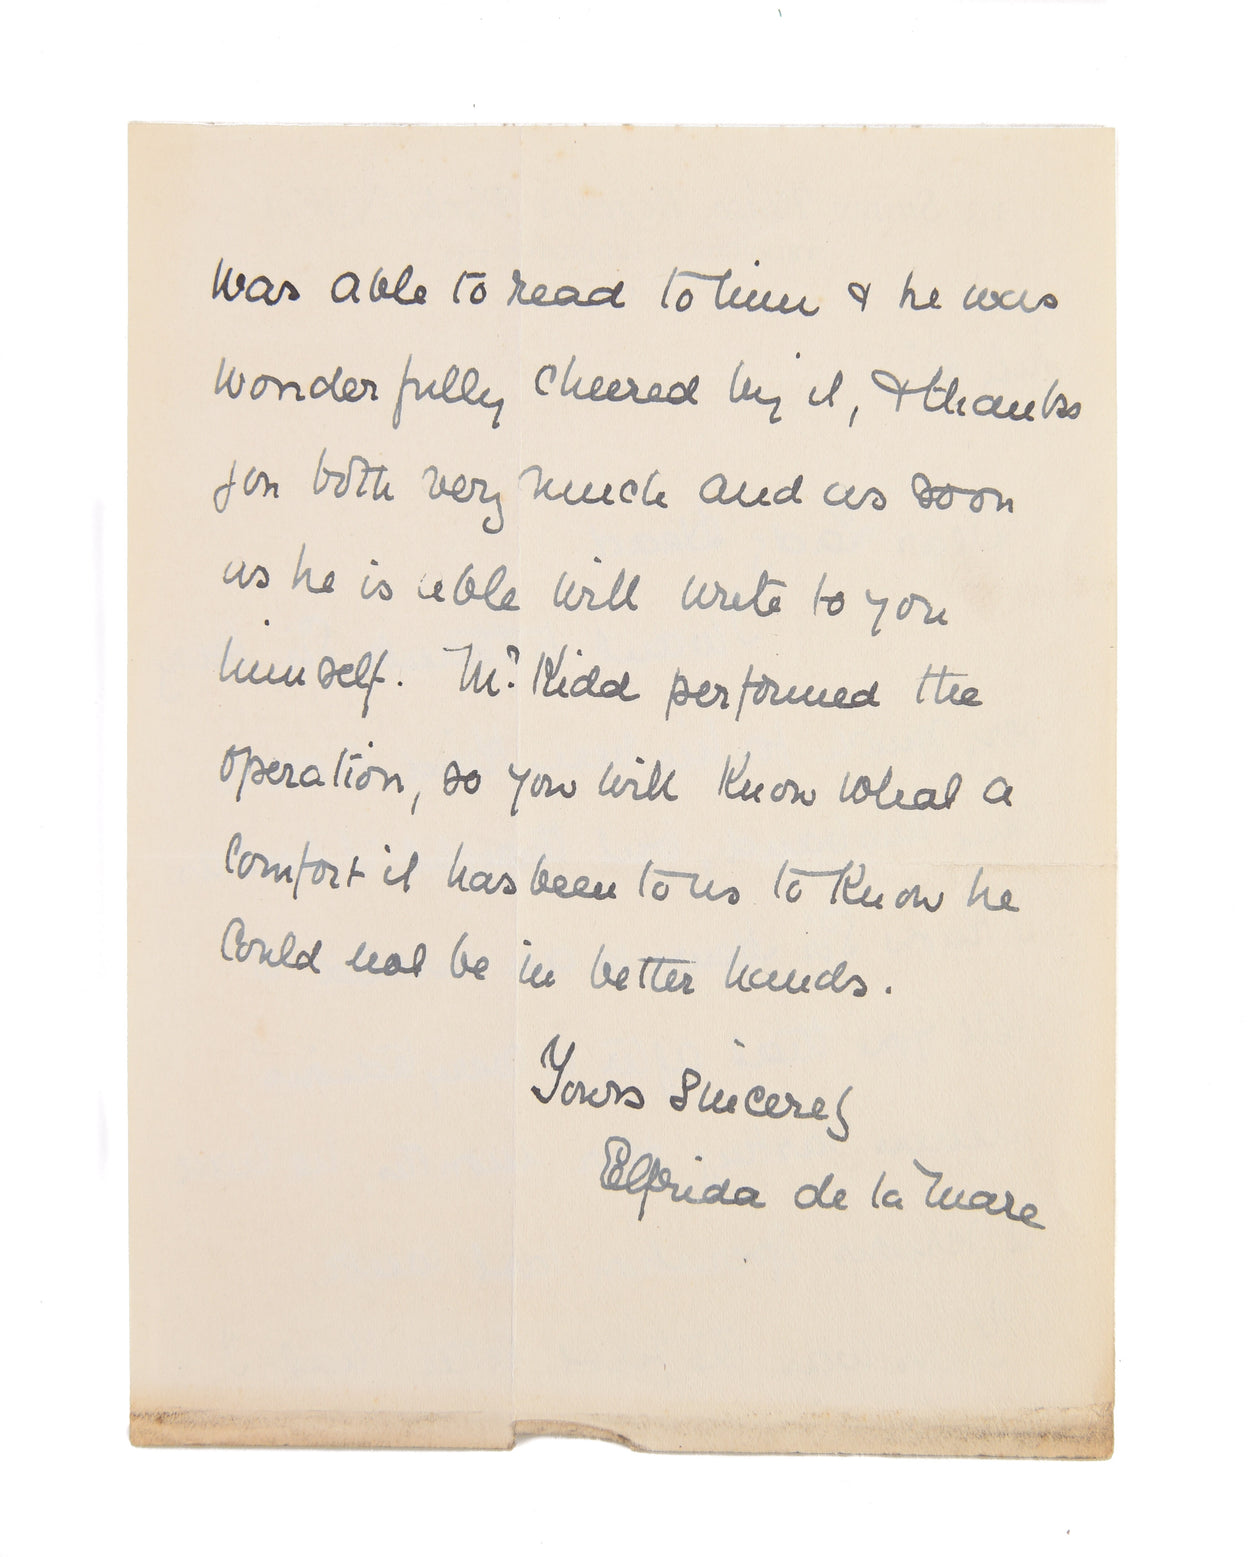 was able to read to him & he was
wonderfully cheered by it, & thanks
you both very much and as soon
as he is able will write to you
himself. Mr Kidd performed the
operation, so you will know what a
comfort it has been to us to know he
could not be in better hands.
Yours sincerely
Elfrida de la Mare